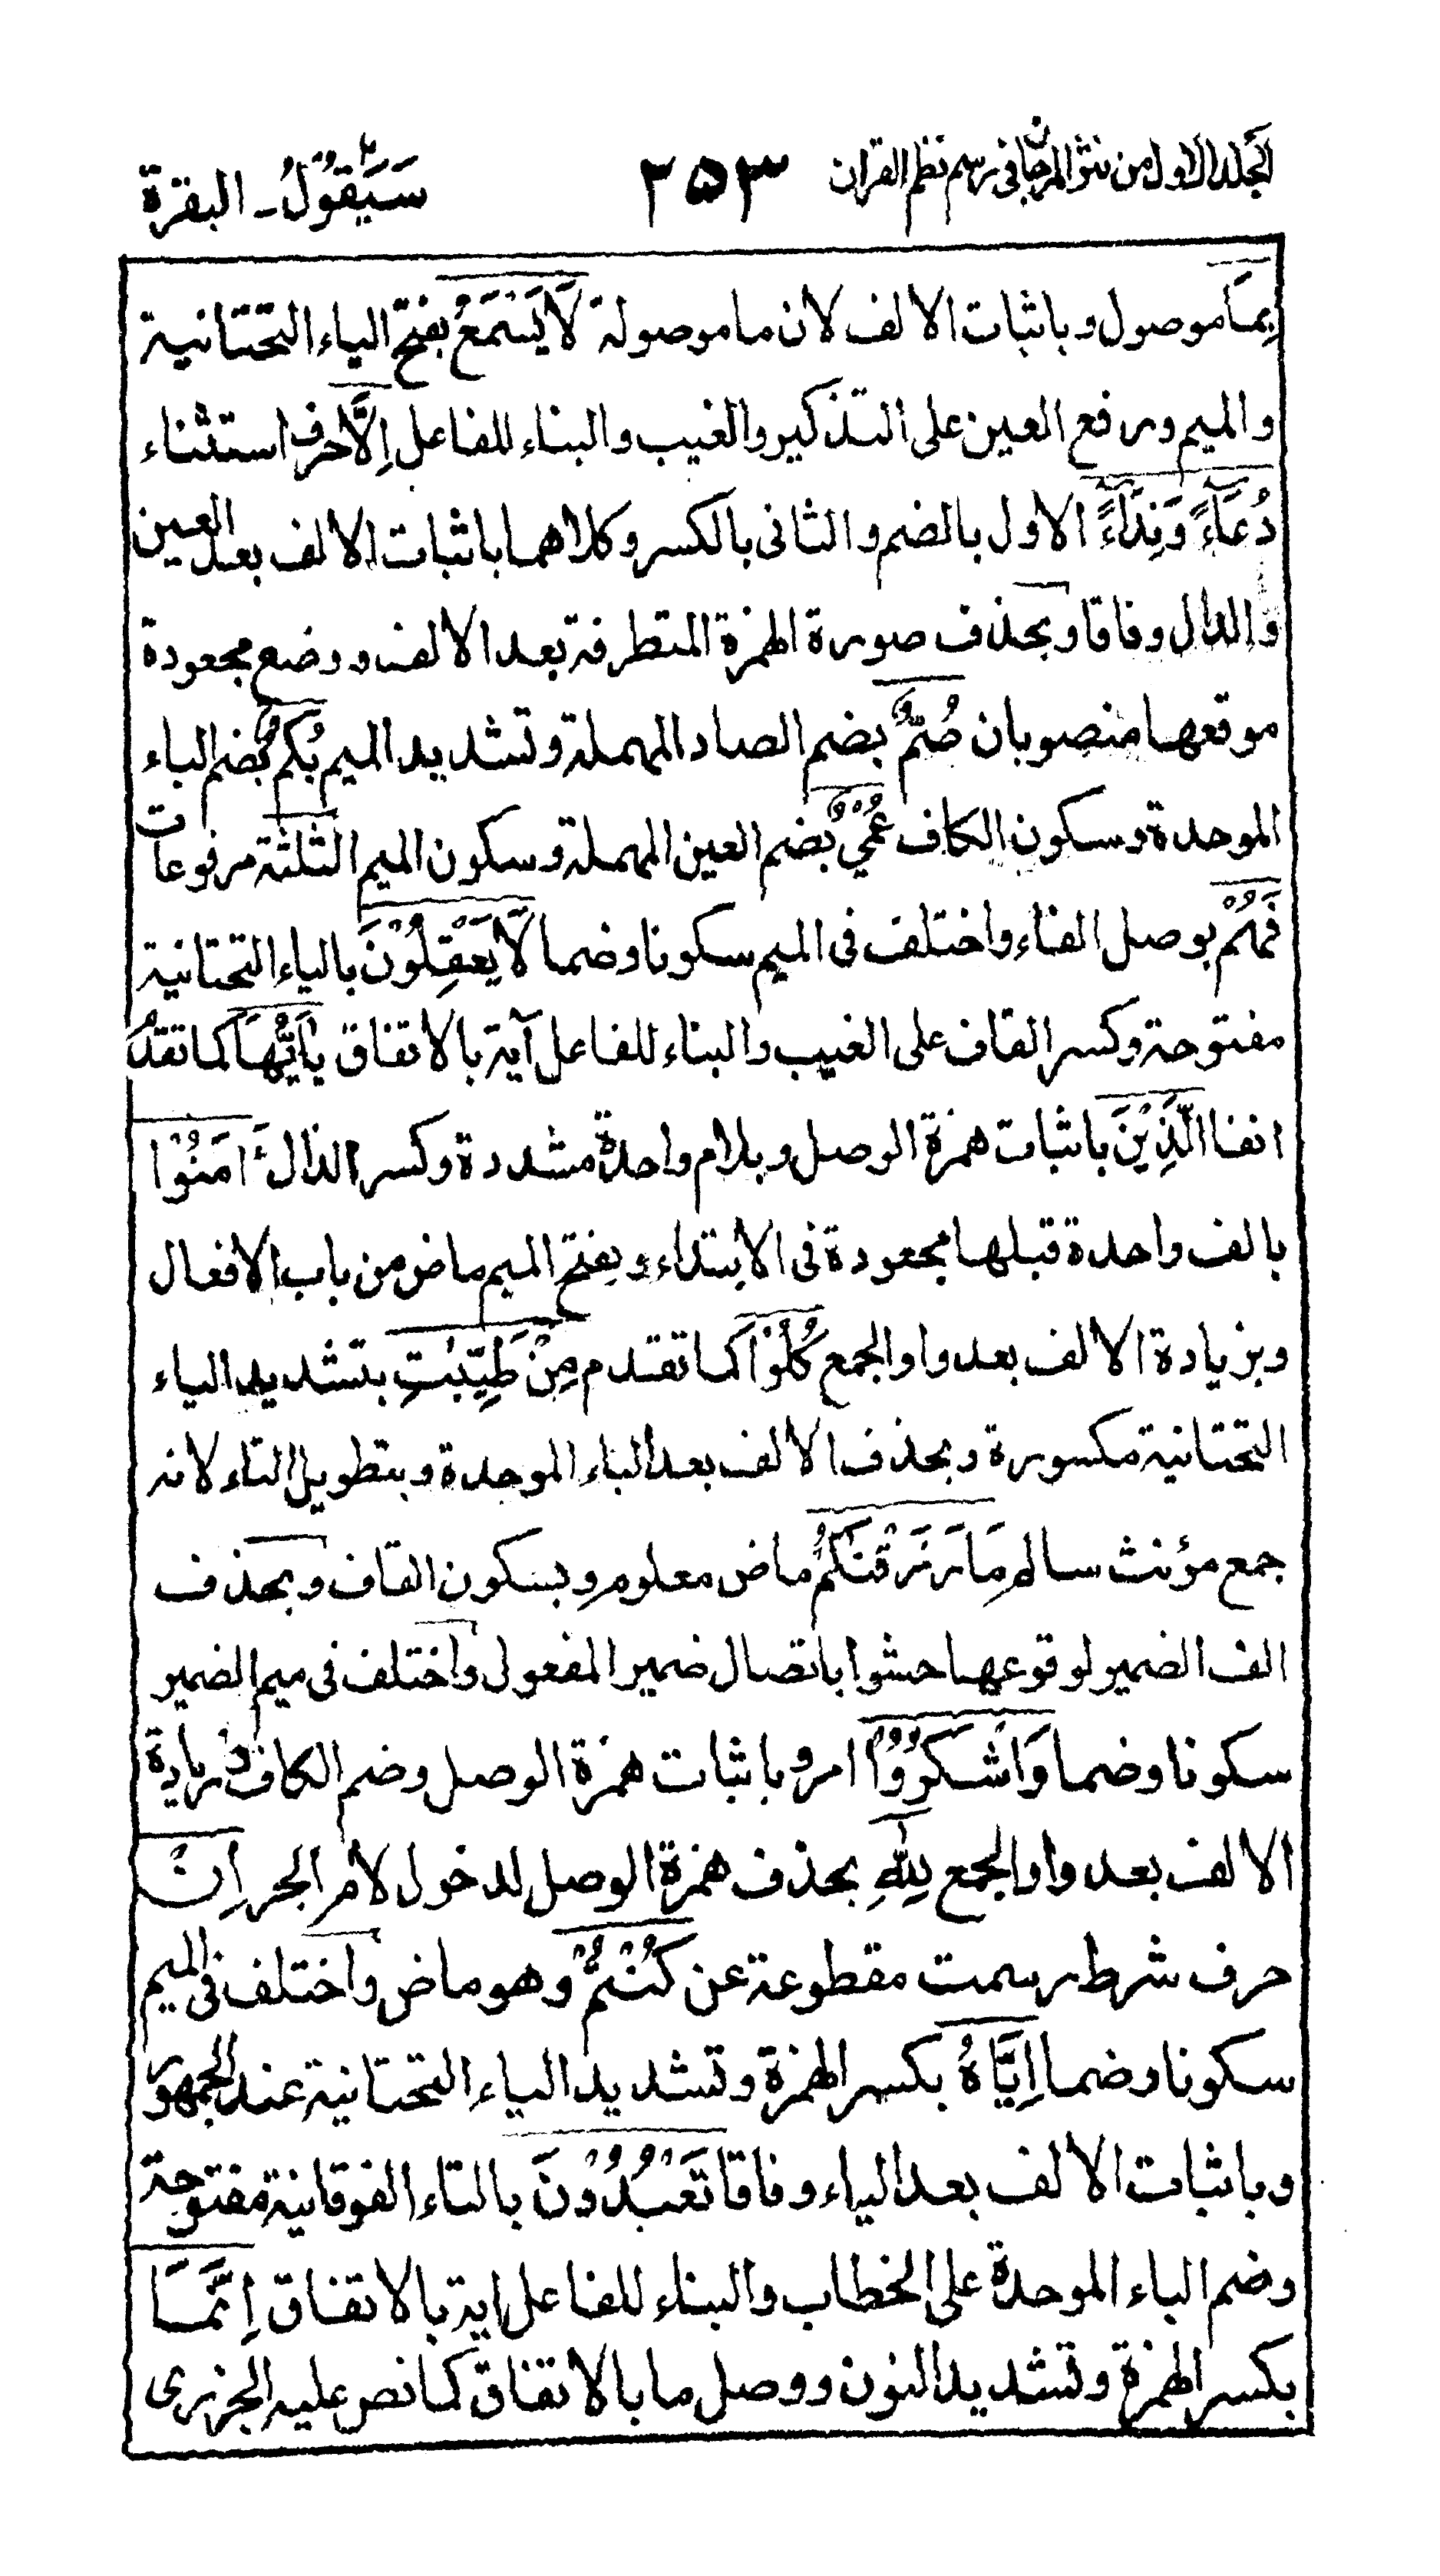 المجلد الاول من نثر المرجان فی رسم نظم القران ۲۵۳ سَيَقُوْلُ۲ـ البقرة
بِمَا موصول وباثبات الالف لان ما موصولة لَا يَسْمَعُ بفتح الياء التحتانية
والميم ورفع العين على التذكير والغيب والبناء للفاعل اِلَّا حرف استثناء
دُعَآءً وَنِدَآءً الاول بالضم والثانی بالكسر وكلاهما باثبات الالف بعد العين
والدال وفاقا وبحذف صورة الهمزة المتطرفة بعد الالف ووضع مجعودة
موقعها منصوبان صُمٌّ بضم الصاد المهملة وتشديد الميم بُكْمٌ بضم الباء
الموحدة وسكون الكاف عُمْيٌ بضم العين المهملة وسكون الميم الثلثة مرفوعات
فَهُمْ بوصل الفاء واختلف فی الميم سكونا وضما لَا يَعْقِلُوْنَ بالياء التحتانية
مفتوحة وكسر القاف على الغيب والبناء للفاعل آية بالاتفاق يٰاَيُّهَا كما تقدم
انفا الَّذِيْنَ باثبات همزة الوصل وبلام واحدة مشددة وكسر الذال ءَامَنُوْا
بالف واحدة قبلها مجعودة فی الابتداء وبفتح الميم ماض من باب الافعال
وبزيادة الالف بعد واو الجمع كُلُوْا كما تقدم مِنْ طَيِّبٰتِ بتشديد الياء
التحتانية مكسورة وبحذف الالف بعد الباء الموحدة وبتطويل التاء لانه
جمع مؤنث سالم مَا رَزَقْنٰكُمْ ماض معلوم وبسكون القاف وبحذف
الف الضمير لوقوعها حشوا باتصال ضمير المفعول واختلف فی ميم الضمير
سكونا وضما وَاشْكُرُوْا امر وباثبات همزة الوصل وضم الكاف وزيادة
الالف بعد واو الجمع لِلّٰهِ بحذف همزة الوصل لدخول لام الجر اِنْ
حرف شرط رسمت مقطوعة عن كُنْتُمْ وهو ماض واختلف فی الميم
سكونا وضما اِيَّاهُ بكسر الهمزة وتشديد الياء التحتانية عند الجمهور
وباثبات الالف بعد الياء وفاقا تَعْبُدُوْنَ بالتاء الفوقانية مفتوحة
وضم الباء الموحدة على الخطاب والبناء للفاعل اية بالاتفاق اِنَّمَا
بكسر الهمزة وتشديد النون ووصل ما بالاتفاق كما نص عليه الجزری